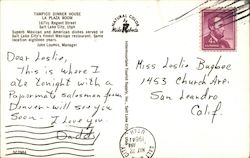 TAMPICO DINNER HOUSE
LA PLAZA ROOM
167½ Regent Street
Salt Lake City, Utah
Superb Mexican and American dishes served in
Salt Lake City's finest Mexican restaurant. Same
location eighteen years.
John Loumis, Manager
Dear Leslie,
This is where I
ate tonight with a
Papermate salesman from
Denver - will see you
soon. I love you.
Daddy
Miss Leslie Bagbee
1453 Church Ave.
San Leandro
Calif.